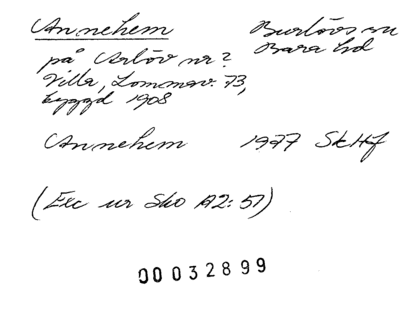 Annehem Burlövs sn
på Arlöv nr? Bara hd
Villa, Lommav. 73,
byggd 1908
Annehem 1977 SkHf
(Exc ur Sko A2:57)
00032899